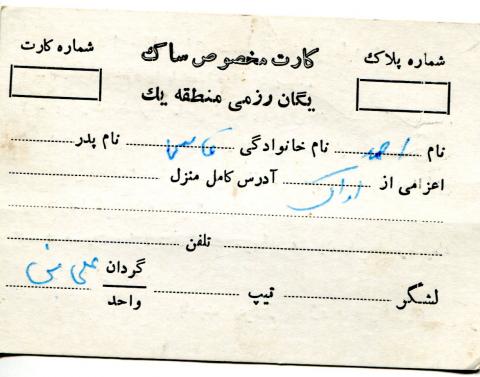 شماره پلاک کارت مخصوص ساک شماره کارت
یگان رزمی منطقه یک
نام احمد نام خانوادگی قاسمی نام پدر
اعزامی از اراک آدرس کامل منزل
تلفن
لشگر تیپ گردان
واحد